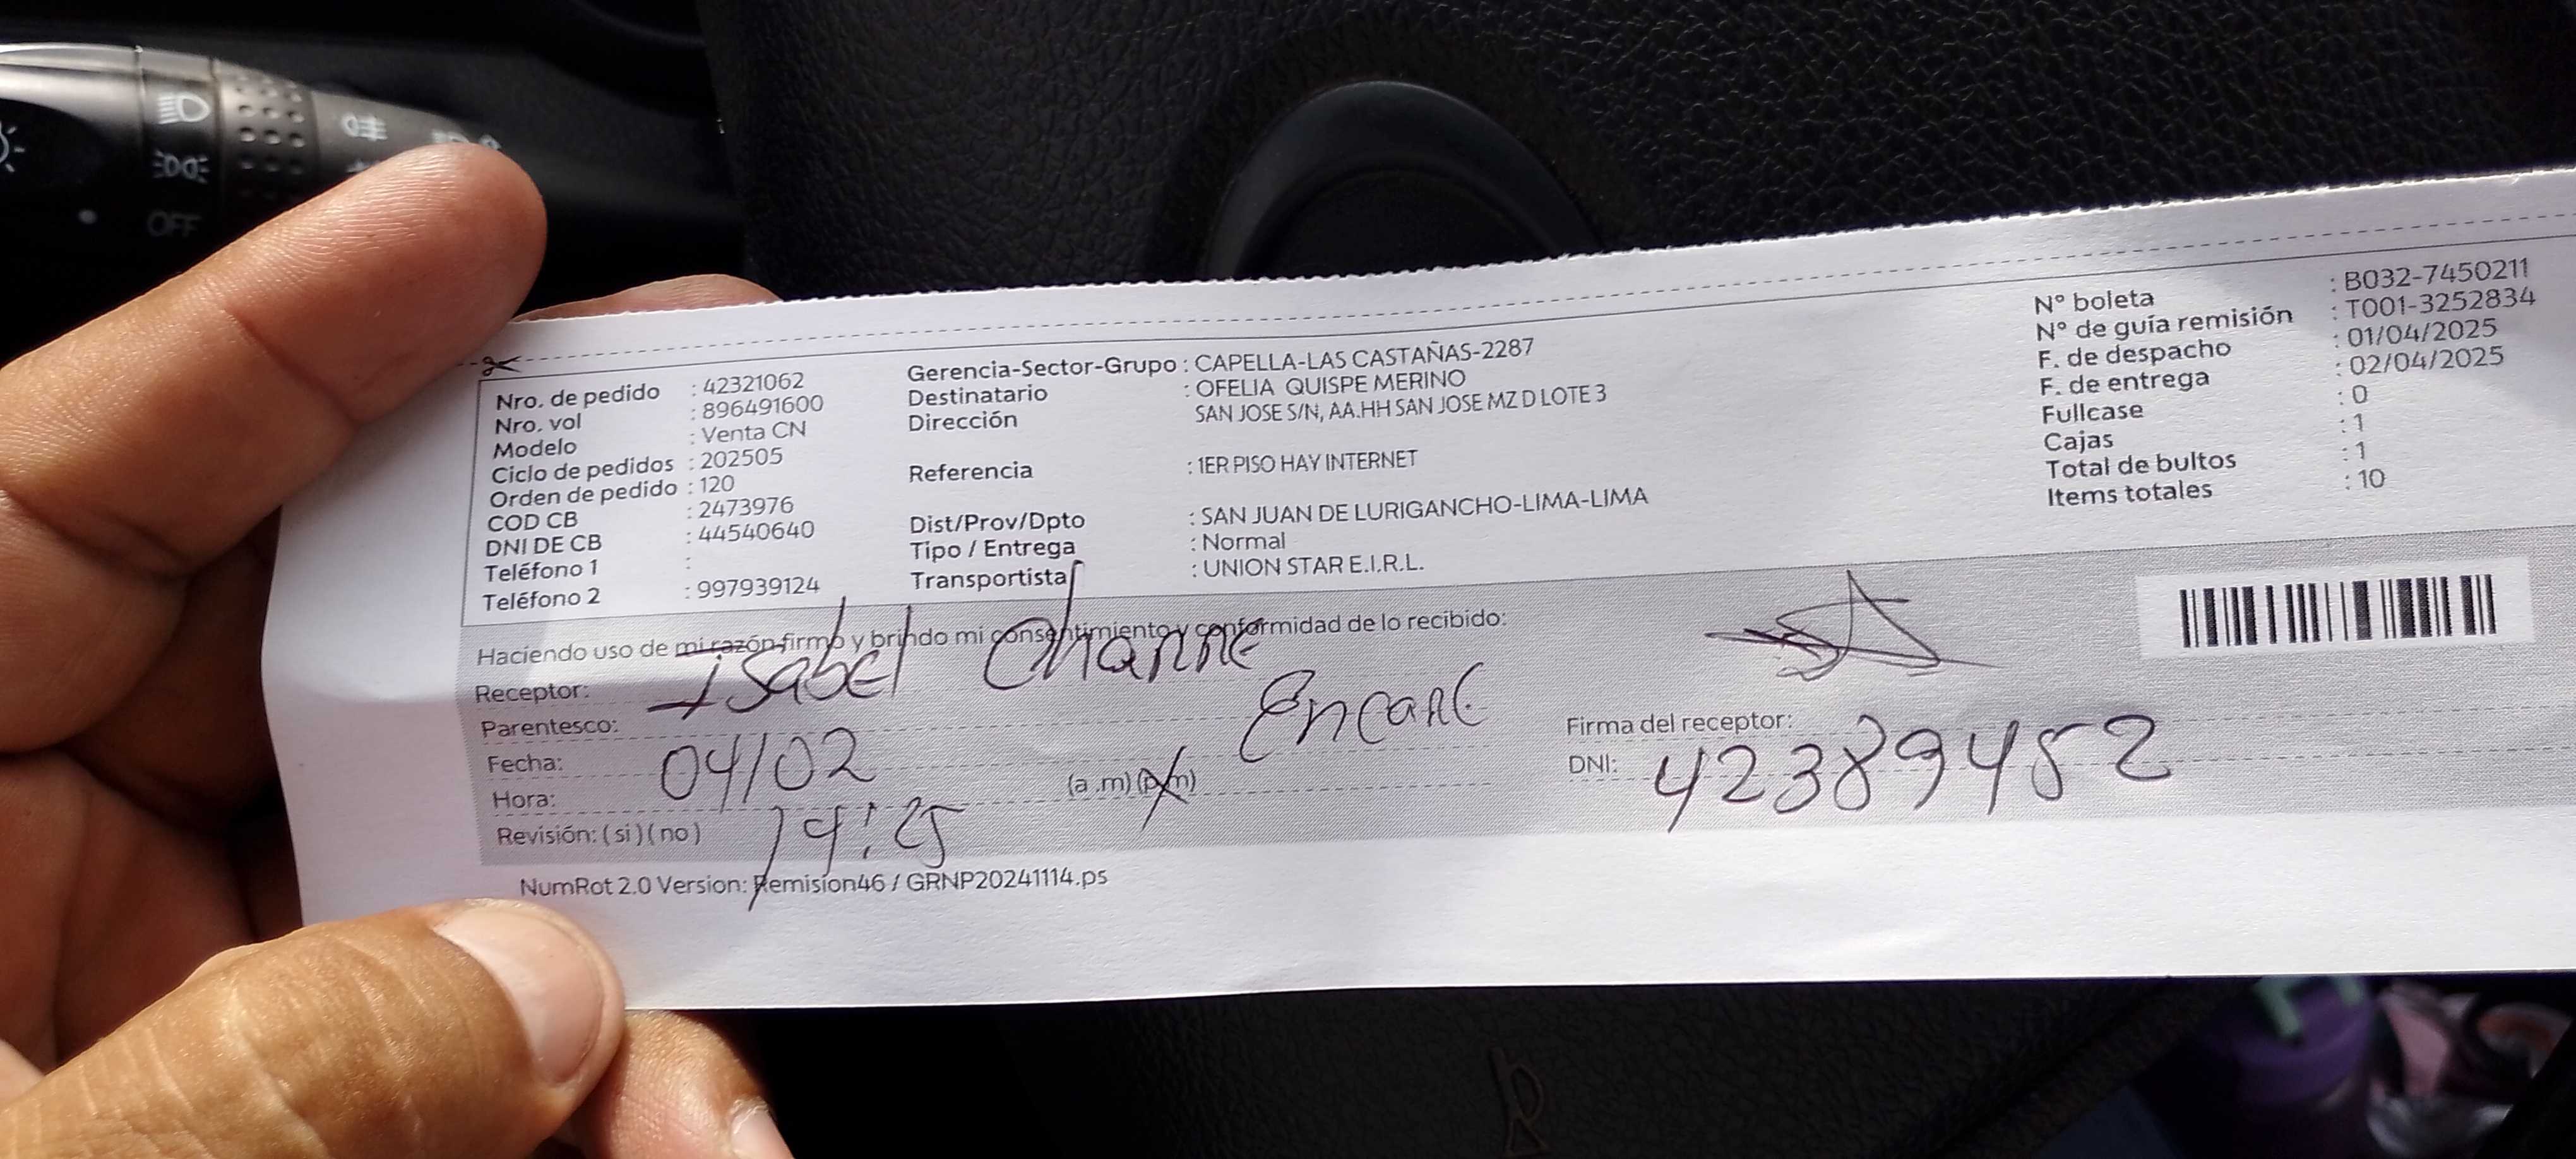 OFF
Nro. de pedido : 42321062
Nro. vol : 896491600
Modelo : Venta CN
Ciclo de pedidos : 202505
Orden de pedido : 120
COD CB : 2473976
DNI DE CB : 44540640
Teléfono 1 :
Teléfono 2 : 997939124
Gerencia-Sector-Grupo : CAPELLA-LAS CASTAÑAS-2287
Destinatario : OFELIA QUISPE MERINO
Dirección SAN JOSE S/N, AA.HH SAN JOSE MZ D LOTE 3
Referencia : 1ER PISO HAY INTERNET
Dist/Prov/Dpto : SAN JUAN DE LURIGANCHO-LIMA-LIMA
Tipo / Entrega : Normal
Transportista : UNION STAR E.I.R.L.
N° boleta : B032-7450211
N° de guía remisión : T001-3252834
F. de despacho : 01/04/2025
F. de entrega : 02/04/2025
Fullcase : 0
Cajas : 1
Total de bultos : 1
Items totales : 10
Haciendo uso de mi razón firmo y brindo mi consentimiento y conformidad de lo recibido:
Receptor: Isabel
Parentesco:
Fecha: 04/02
Hora: 14:25 (a.m) (p.m)
Revisión: (si) (no)
Firma del receptor:
DNI: 42389452
NumRot 2.0 Version: Remision46 / GRNP20241114.ps